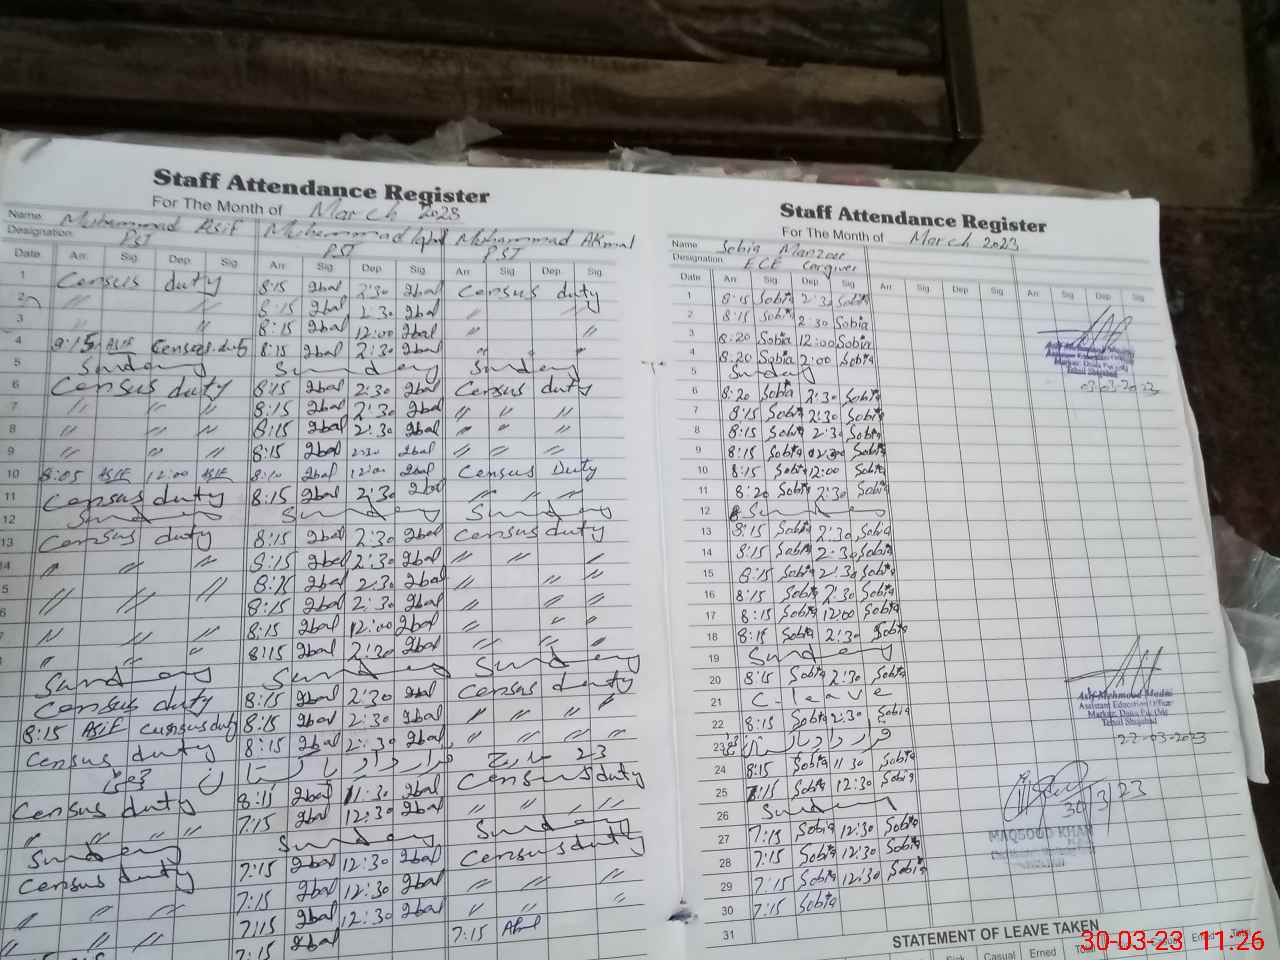 Staff Attendance Register
For The Month of March 2023
Name Muhammad Asif Muhammad Iqbal Muhammad Akmal
Designation PST PST PST
Date Arr. Sig. Dep. Sig. Arr. Sig. Dep. Sig. Arr. Sig. Dep. Sig.
1 Census duty 8:15 Iqbal 2:30 Iqbal Census duty
2 〃 〃 8:15 Iqbal 2:30 Iqbal 〃 〃
3 〃 8:15 Iqbal 12:00 Iqbal 〃 〃
4 8:15 ASIF Census duty 8:15 Iqbal 2:30 Iqbal 〃 〃
5 Sunday Sunday Sunday
6 Census duty 8:15 Iqbal 2:30 Iqbal Census duty
7 〃 〃 〃 8:15 Iqbal 2:30 Iqbal 〃 〃 〃
8 〃 〃 〃 8:15 Iqbal 2:30 Iqbal 〃 〃 〃
9 〃 〃 〃 8:15 Iqbal 2:30 Iqbal 〃 〃 〃
10 8:05 ASIF 12:00 ASIF 8:10 Iqbal 12:00 Iqbal Census Duty
11 Census duty 8:15 Iqbal 2:30 Iqbal 〃 〃 〃
12 Sunday Sunday Sunday
13 Census duty 8:15 Iqbal 2:30 Iqbal Census duty
14 〃 〃 〃 8:15 Iqbal 2:30 Iqbal 〃 〃 〃
5 〃 〃 〃 8:15 Iqbal 2:30 Iqbal 〃 〃 〃
6 8:15 Iqbal 2:30 Iqbal 〃 〃 〃
7 〃 〃 〃 8:15 Iqbal 12:00 Iqbal 〃 〃 〃
〃 〃 〃 8:15 Iqbal 2:30 Iqbal 〃 〃 〃
Sunday Sunday Sunday
Census duty 8:15 Iqbal 2:30 Iqbal Census duty
8:15 ASIF Census duty 8:15 Iqbal 2:30 Iqbal 〃 〃 〃
Census duty 8:15 Iqbal 2:30 Iqbal 〃 〃 〃
قرار داد پاکستان 23 مارچ
Census duty 8:15 Iqbal 11:30 Iqbal Census duty
〃 〃 〃 7:15 Iqbal 12:30 Iqbal 〃 〃 〃
Sunday Sunday Sunday
Census duty 7:15 Iqbal 12:30 Iqbal Census duty
〃 〃 7:15 Iqbal 12:30 Iqbal 〃 〃 〃
〃 〃 〃 7:15 Iqbal 12:30 Iqbal 〃 〃 〃
7:15 Iqbal 7:15
Staff Attendance Register
For The Month of March 2023
Name Sobia Manzoor
Designation ECE Cargiver
Date Arr. Sig. Dep. Sig. Arr. Sig. Dep. Sig. Arr. Sig. Dep. Sig.
1 8:15 Sobia 2:30 Sobia
2 8:15 Sobia 2:30 Sobia
3 8:20 Sobia 12:00 Sobia
4 8:20 Sobia 2:00 Sobia
5 Sunday
6 8:20 Sobia 2:30 Sobia
7 8:15 Sobia 2:30 Sobia
8 8:15 Sobia 2:30 Sobia
9 8:15 Sobia 2:30 Sobia
10 8:15 Sobia 12:00 Sobia
11 8:20 Sobia 2:30 Sobia
12 Sunday
13 8:15 Sobia 2:30 Sobia
14 8:15 Sobia 2:30 Sobia
15 8:15 Sobia 2:30 Sobia
16 8:15 Sobia 2:30 Sobia
17 8:15 Sobia 12:00 Sobia
18 8:15 Sobia 2:30 Sobia
19 Sunday
20 8:15 Sobia 2:30 Sobia
21 C- leave
22 8:15 Sobia 2:30 Sobia
23 قرار داد پاکستان
24 8:15 Sobia 11:30 Sobia
25 8:15 Sobia 12:30 Sobia
26 Sunday
27 7:15 Sobia 12:30 Sobia
28 7:15 Sobia 12:30 Sobia
29 7:15 Sobia 12:30 Sobia
30 7:15 Sobia
31
03-03-2023
Asif Mehmood
Assistant Education Officer
Markaz
Tehsil Shujabad
22-03-2023
30/3/23
MAQSOOD KHAN
STATEMENT OF LEAVE TAKEN
Sick Casual Erned Total Casual Erned Total
30-03-23 11:26